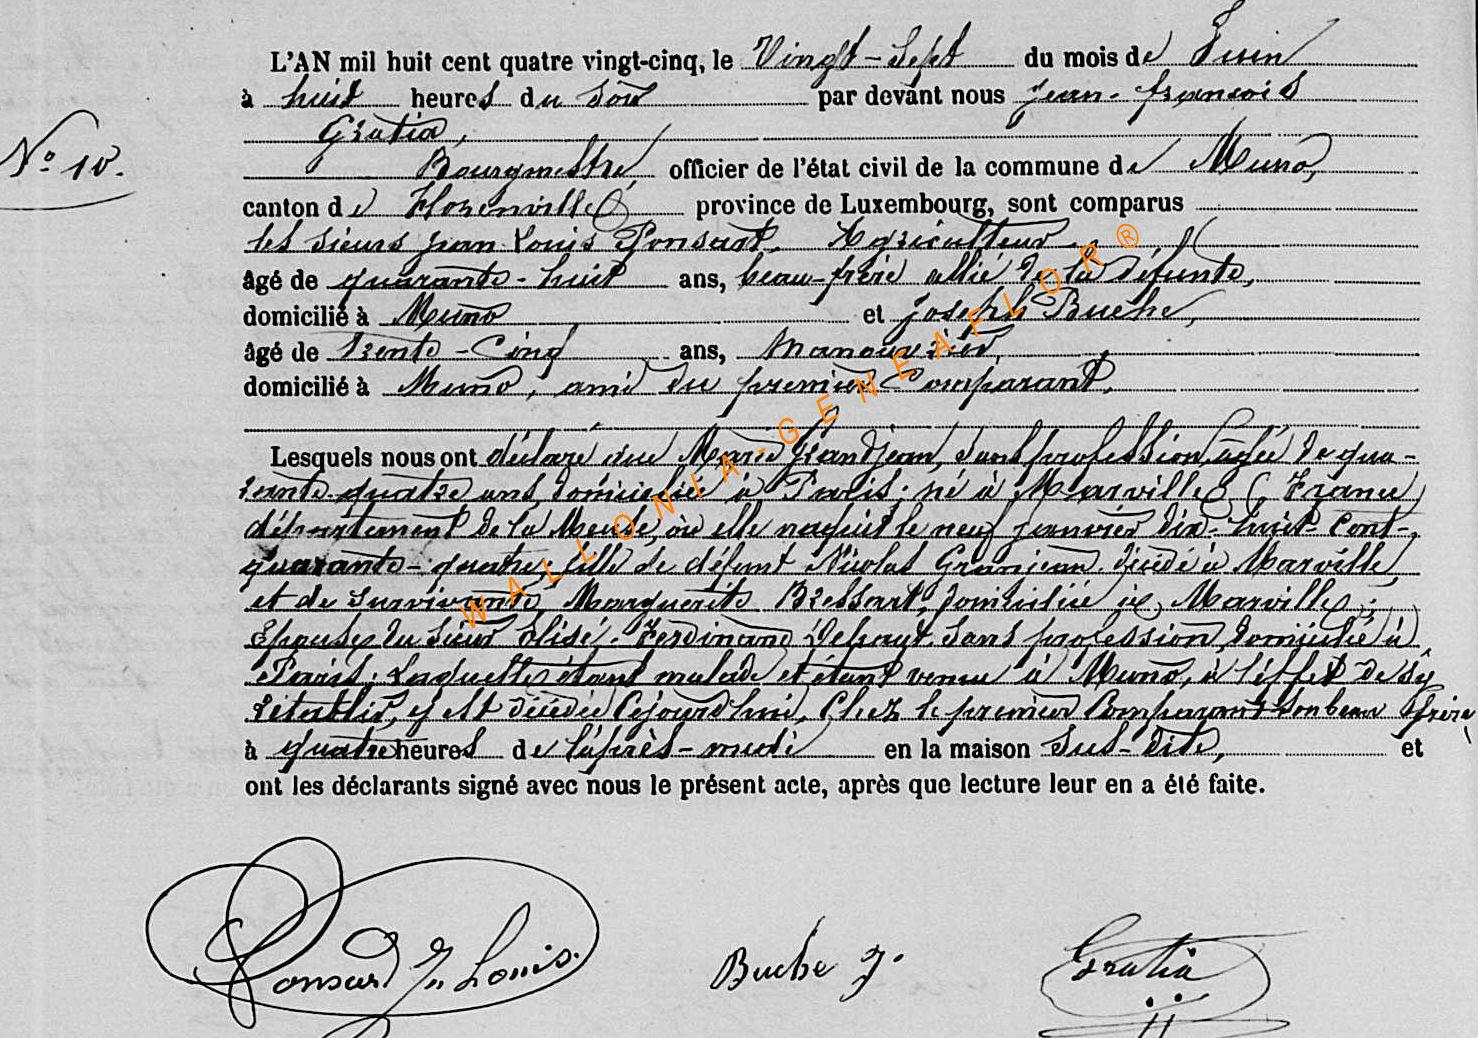 L'AN mil huit cent quatre vingt-cinq, le Vingt-Sept du mois de Juin
à huit heures du soir par devant nous Jean-françois
Gratia,
N° 10.
Bourgmestre, officier de l'état civil de la commune de Muno,
canton de Florenville province de Luxembourg, sont comparus
les sieurs Jean Louis Ponsart, Agriculteur
âgé de quarante-huit ans, beau-frère allié de la défunte,
domicilié à Muno et Joseph Buche,
âgé de trente-Cinq ans, Manouvrier,
domicilié à Muno, ami du premier Comparant.
Lesquels nous ont déclaré que Marie Grandjean, sans profession, agée de qua-
rante-quatre ans, domiciliée à Paris; né à Marville (France)
département de la Meuse, où elle naquit le neuf janvier dix-huit-Cent-
quarante-quatre, fille de défunt Nicolas Granjean décédé à Marville,
et de survivante Marguerite Bressart, domiciliée à Marville;
Epouse du sieur Elisé-Ferdinand sans profession, domicilié à
Paris; Laquelle étant malade et étant venue à Muno, à l'éffet de s'y
rétablir, y est décédée Cejourd'hui, Chez le premier Comparant Son beau frère
à quatre heures de l'après-midi en la maison Sus-dite, et
ont les déclarants signé avec nous le présent acte, après que lecture leur en a été faite.
Ponsard Jn Louis. Buche J. Gratia
WALLONIA-GENEAFLOR®